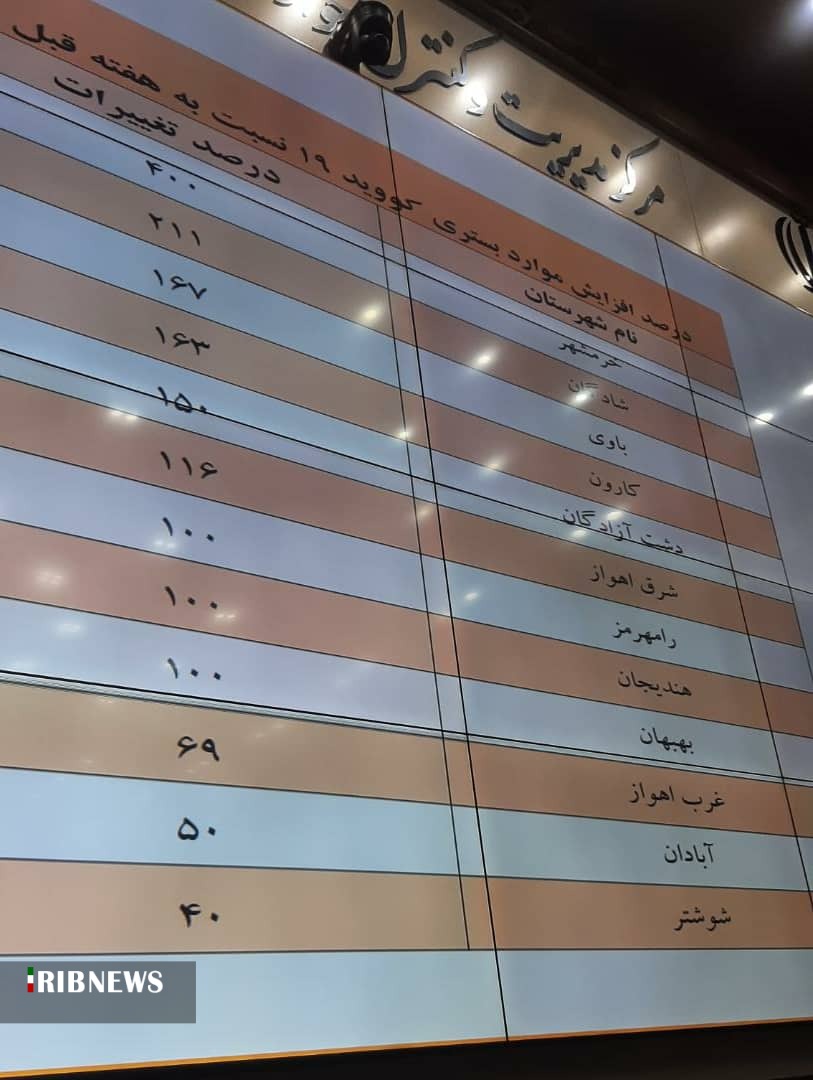 مرکز مدیریت و کنترل
درصد افزایش موارد بستری کووید ۱۹ نسبت به هفته قبل
نام شهرستان درصد تغییرات
خرمشهر ۴۰۰
شادگان ۲۱۱
باوی ۱۶۷
کارون ۱۶۳
دشت آزادگان ۱۵۰
شرق اهواز ۱۱۶
رامهرمز ۱۰۰
هندیجان ۱۰۰
بهبهان ۱۰۰
غرب اهواز ۶۹
آبادان ۵۰
شوشتر ۴۰
IRIBNEWS